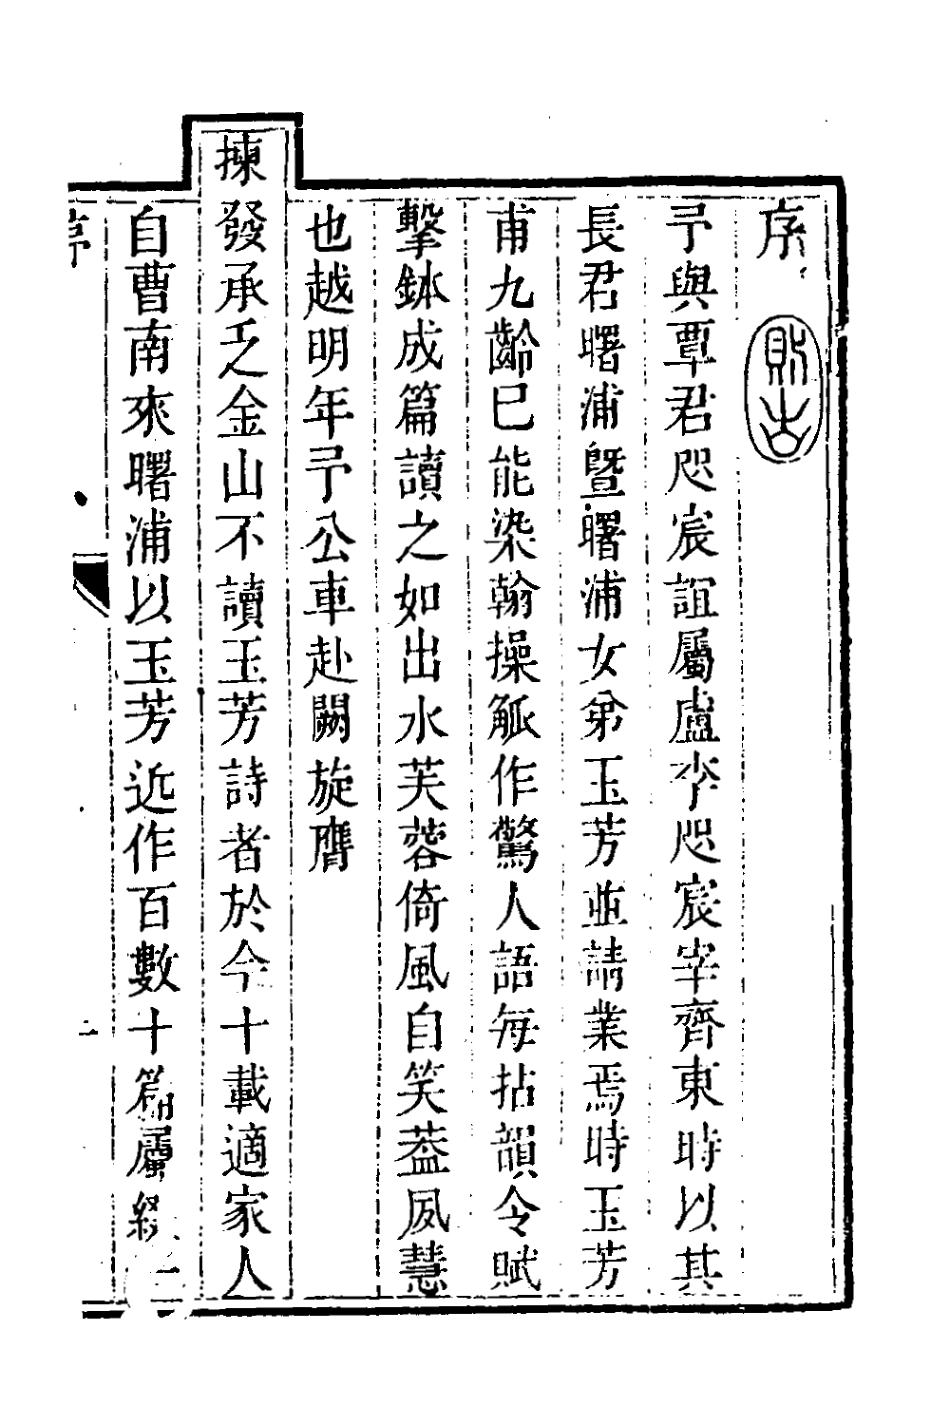 序
則古
予與覃君咫宸誼屬盧李咫宸宰齊東時以其
長君曙浦曁曙浦女弟玉芳並請業焉時玉芳
甫九齡已能染翰操觚作驚人語每拈韻令賦
擊鉢成篇讀之如出水芙蓉倚風自笑葢夙慧
也越明年予公車赴闕旋膺
揀發承乏金山不讀玉芳詩者於今十載適家人
自曹南來曙浦以玉芳近作百數十篇屬綴一
序